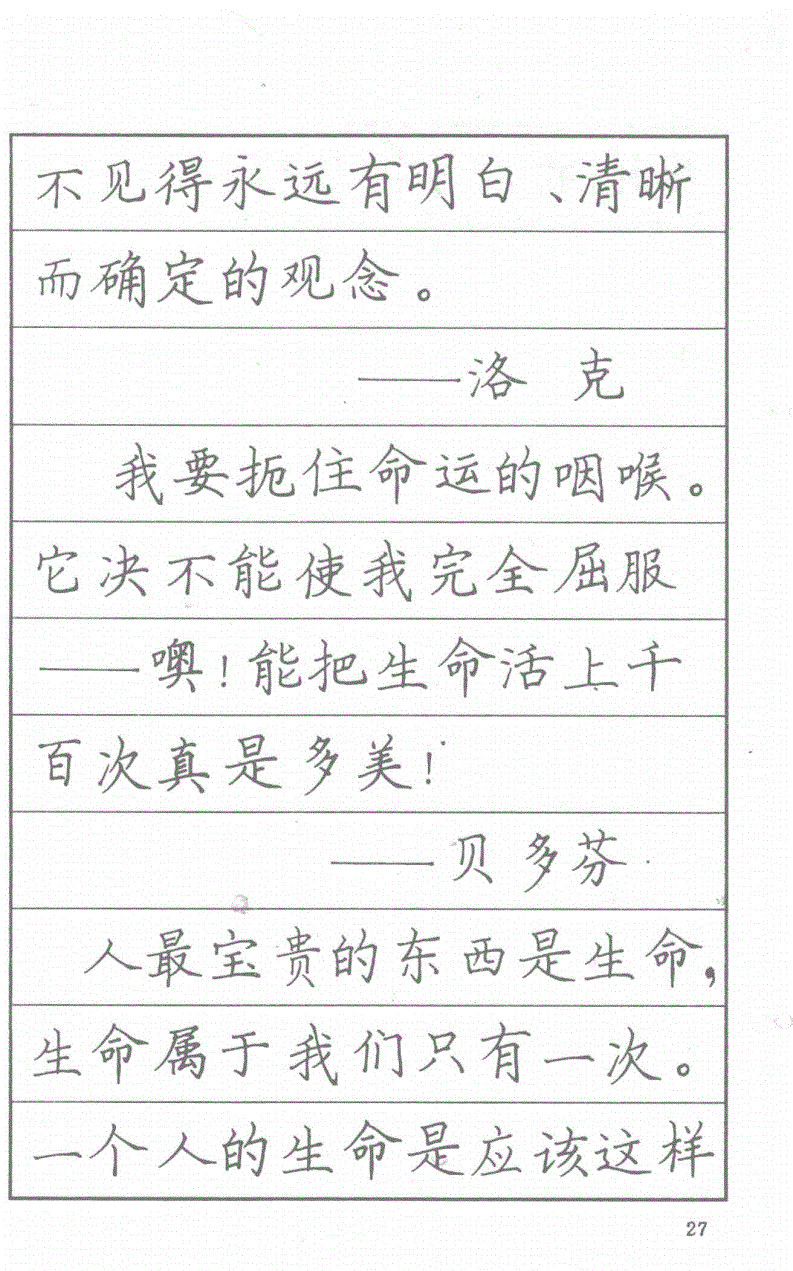 不见得永远有明白、清晰
而确定的观念。
——洛 克
我要扼住命运的咽喉。
它决不能使我完全屈服
——噢!能把生命活上千
百次真是多美!
——贝多芬
人最宝贵的东西是生命,
生命属于我们只有一次。
一个人的生命是应该这样
27